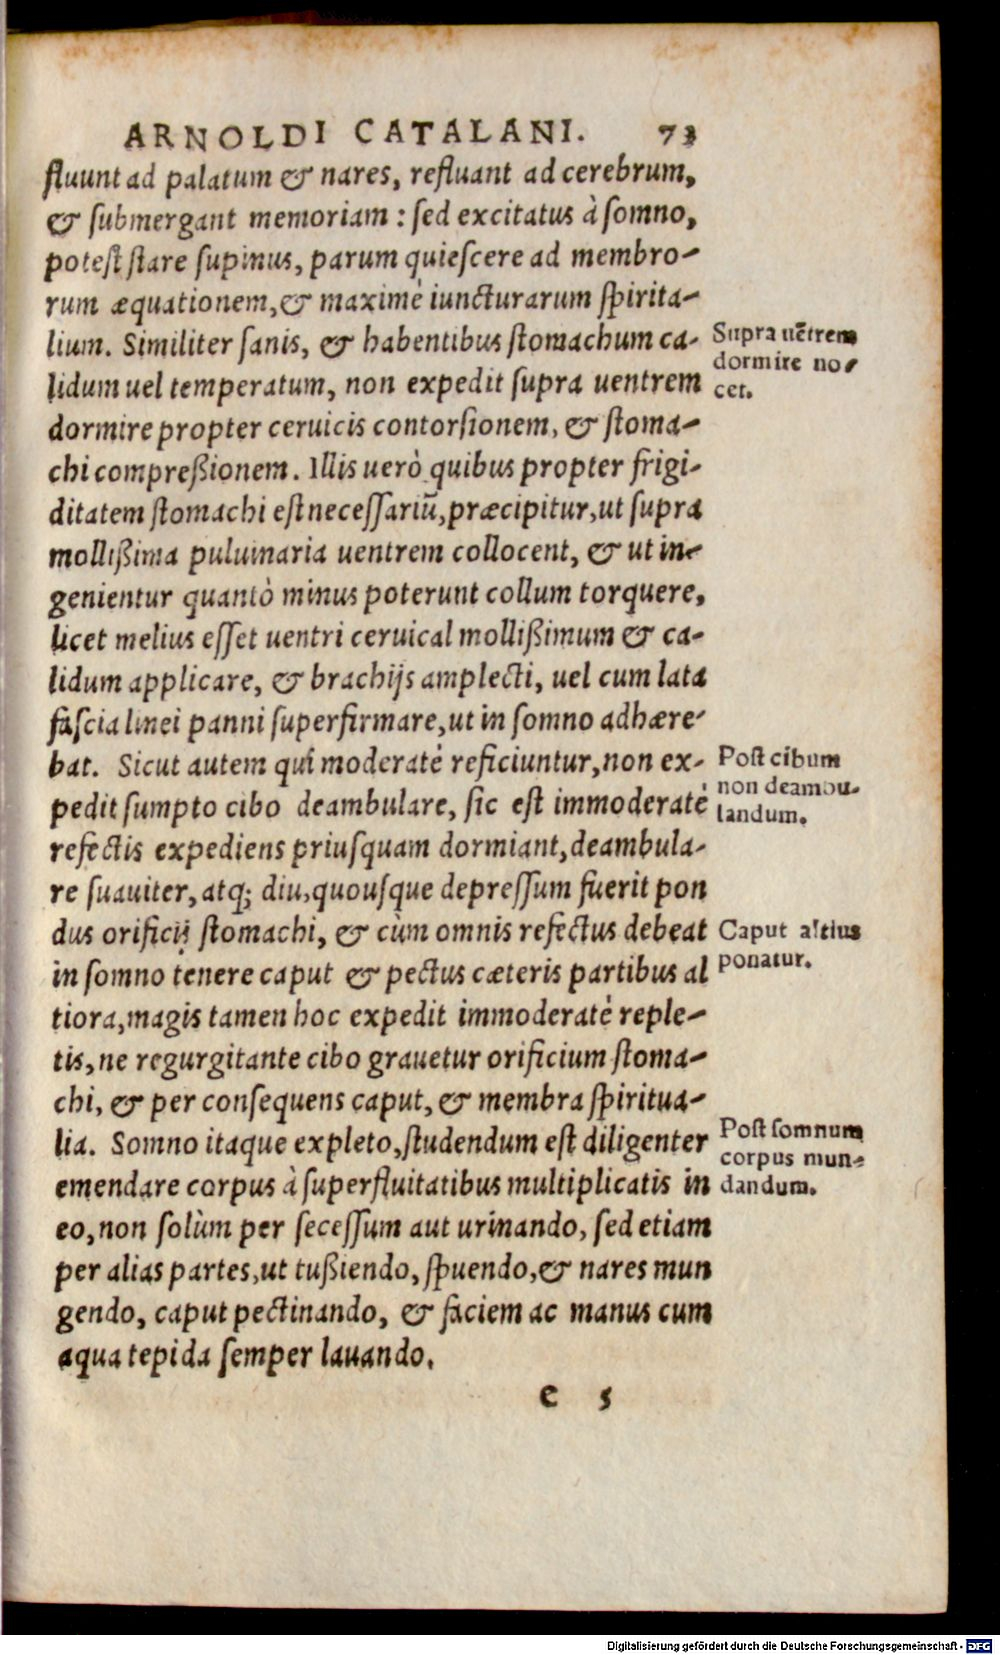 ARNOLDI CATALANI. 73
fluunt ad palatum & nares, refluant ad cerebrum,
& submergant memoriam : sed excitatus à somno,
potest stare supinus, parum quiescere ad membro-
rum æquationem, & maximè iuncturarum spirita-
lium. Similiter sanis, & habentibus stomachum ca-
lidum uel temperatum, non expedit supra uentrem
dormire propter ceruicis contorsionem, & stoma-
chi compreßionem. Illis uerò quibus propter frigi-
ditatem stomachi est necessariũ, præcipitur, ut supra
mollißima puluinaria uentrem collocent, & ut in-
genientur quantò minus poterunt collum torquere,
licet melius esset uentri ceruical mollißimum & ca-
lidum applicare, & brachijs amplecti, uel cum lata
fascia linei panni superfirmare, ut in somno adhære-
bat. Sicut autem qui moderatè reficiuntur, non ex-
pedit sumpto cibo deambulare, sic est immoderatè
refectis expediens priusquam dormiant, deambula-
re suauiter, atq; diu, quousque depressum fuerit pon
dus orificij stomachi, & cùm omnis refectus debeat
in somno tenere caput & pectus cæteris partibus al
tiora, magis tamen hoc expedit immoderatè reple-
tis, ne regurgitante cibo grauetur orificium stoma-
chi, & per consequens caput, & membra spiritua-
lia. Somno itaque expleto, studendum est diligenter
emendare corpus à superfluitatibus multiplicatis in
eo, non solùm per secessum aut urinando, sed etiam
per alias partes, ut tußiendo, spuendo, & nares mun
gendo, caput pectinando, & faciem ac manus cum
aqua tepida semper lauando.
e 5
Supra uẽtrem
dormire no-
cet.
Post cibum
non deambu-
landum.
Caput altius
ponatur.
Post somnum
corpus mun-
dandum.
Digitalisierung gefördert durch die Deutsche Forschungsgemeinschaft - DFG